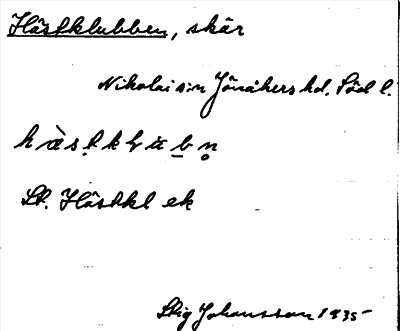 Hästklubben, skär
Nikolai s:n Jönåkers hd. Söd l.
Lt. Hästkl ek
Stig Johansson 1935